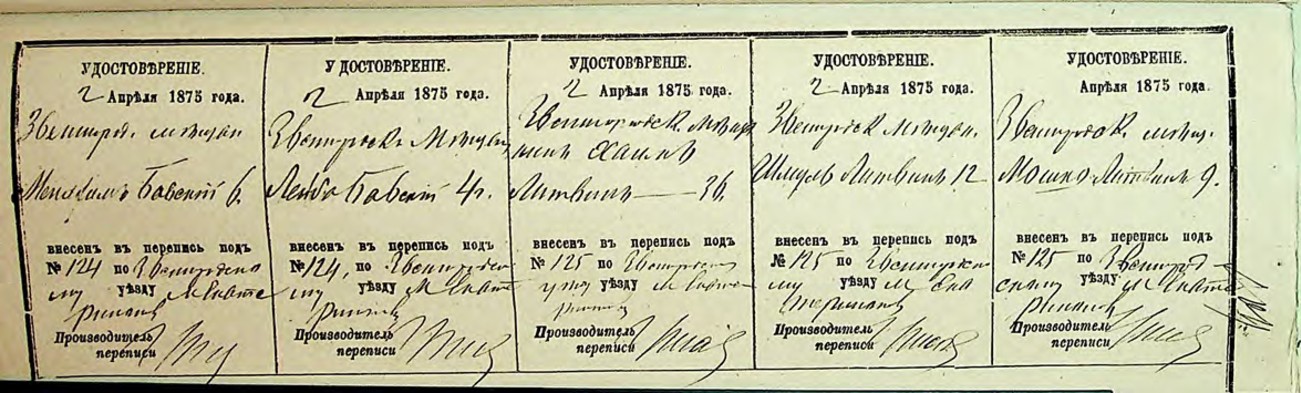 УДОСТОВѢРЕНІЕ.
2 Апрѣля 1875 года.
Звенигород. мѣщан
Бавский 6.
внесенъ въ перепись подъ
№ 124 по Звенигородско
му уѣзду М Екате
Производитель
переписи
УДОСТОВѢРЕНІЕ.
2 Апрѣля 1875 года.
Звенигородск. Мѣщан
Лейба Бавский 4 г.
внесенъ въ перепись подъ
№ 124, по Звенигородско
му уѣзду М Екате
Производитель
переписи
УДОСТОВѢРЕНІЕ.
2 Апрѣля 1875 года.
Звенигородск. мѣщан
нинъ Хаимъ
Литвинъ — 36.
внесенъ въ перепись подъ
№ 125 по Звенигородск
уѣзду М Екате
Производитель
переписи
УДОСТОВѢРЕНІЕ.
2 Апрѣля 1875 года.
Звенигородск Мѣщан.
Шмуль Литвинъ 12
внесенъ въ перепись подъ
№ 125 по Звенигородско
му уѣзду М Ека
Производитель
переписи
УДОСТОВѢРЕНІЕ.
2 Апрѣля 1875 года.
Звенигородск. мѣщ.
Мошко Литвинъ 9.
внесенъ въ перепись подъ
№ 125 по Звенигород-
скому уѣзду М Екате
Производитель
переписи